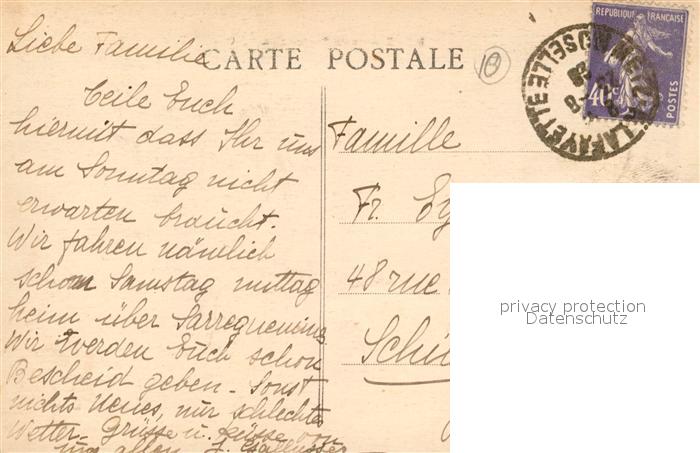 CARTE POSTALE
Liebe Familie
Teile Euch
hiermit dass Ihr uns
am Sonntag nicht
erwarten braucht.
Wir fahren nämlich
schon Samstag mittag
heim über Sarreguemines
Wir werden Euch schon
Bescheid geben - Sonst
nichts Neues, nur schlechtes
Wetter. Grüsse u. Küsse von
uns allen
Famille
Fr. Ey
48 rue
Schi
REPUBLIQUE FRANÇAISE
40c
POSTES
METZ
LAFAYETTE MOSELLE
privacy protection
Datenschutz